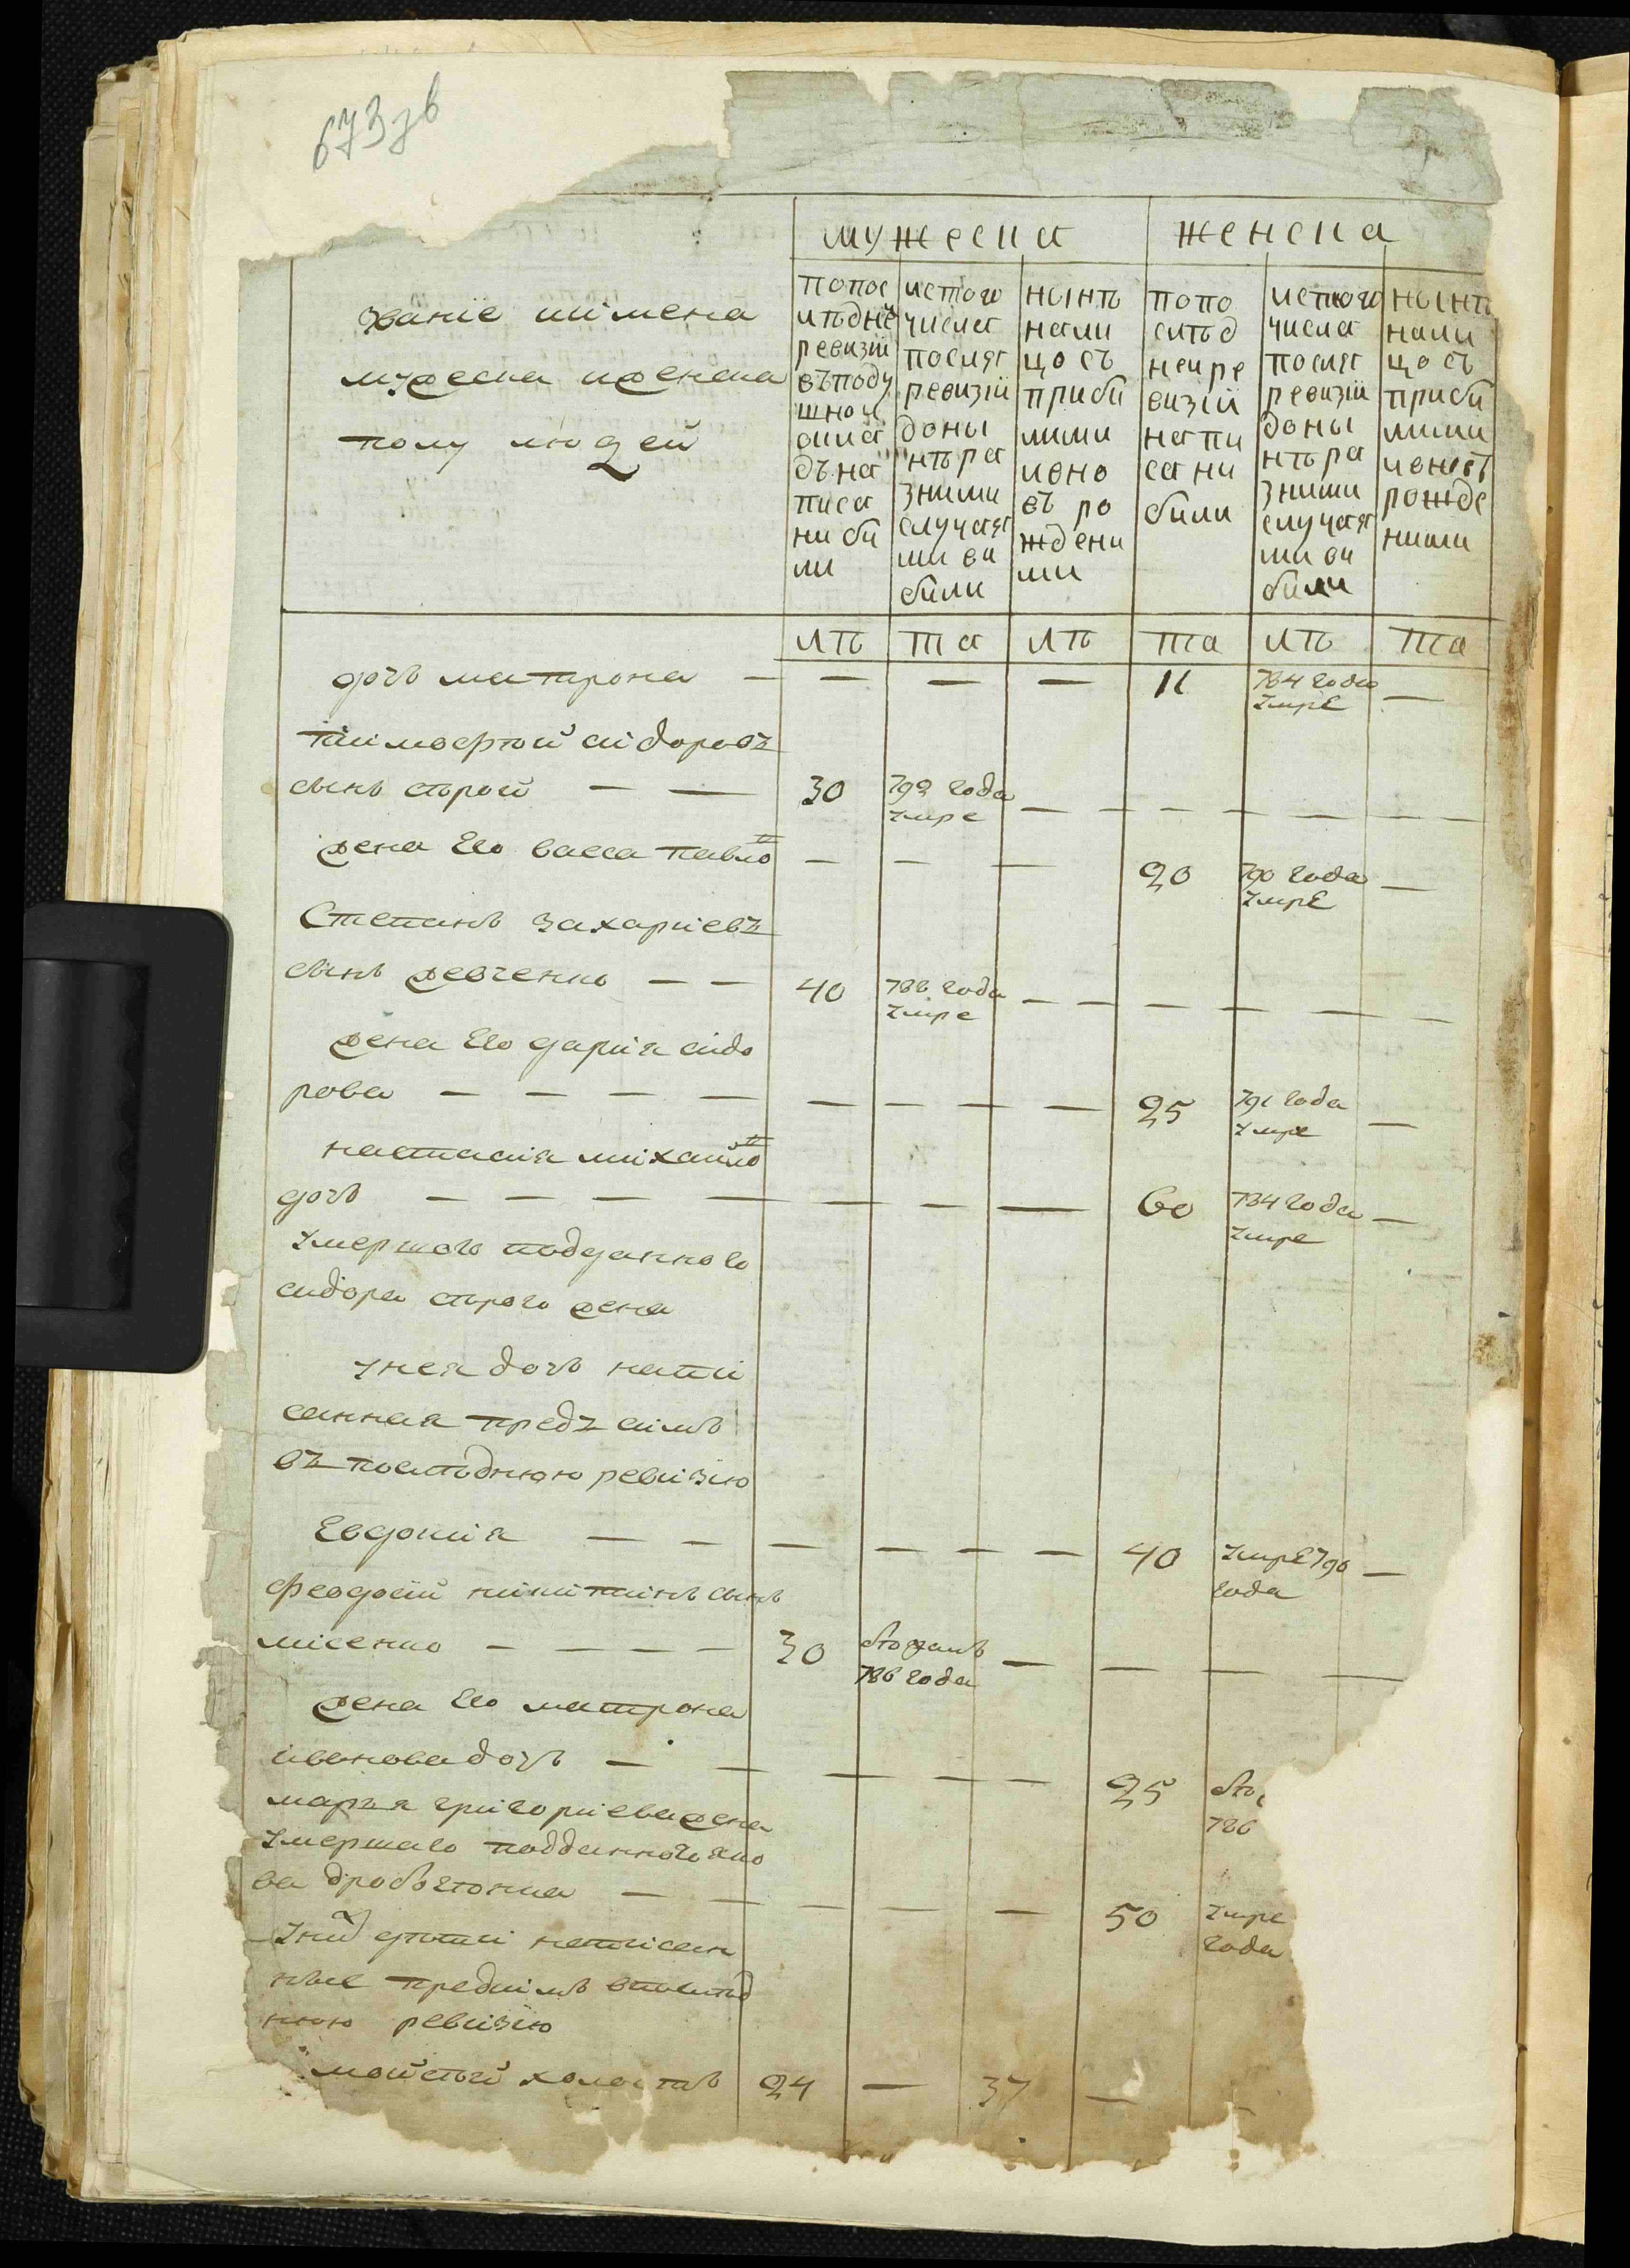 673зв
мужеска
женска
званіе иимена
мужеска иженска
полу людей
попос
лѣдней
ревизіи
въподу
шной
окла
дъна
писа
ни би
ли
истого
числа
послѣ
ревизіи
доны
нѣ ра
зними
случая
ми ви
били
нынѣ
нали
цо съ
приби
лими
ново
въ ро
ждени
ми
попо
слѣд
ней ре
визіи
напи
сани
били
истого
числа
послѣ
ревизіи
доны
нѣ ра
зними
случая
ми ви
били
нынѣ
нали
цо съ
приби
лими
рожде
ними
лѣ та лѣ та лѣ та
дочь матрона — — — — 11 784 года умрЕ —
тимофтой сидоровъ
сынъ сѣрой — — 30 792 года умре — — — — — —
жена Его васса павло — — — 20 790 года умрЕ —
Степанъ захаріевъ
сынъ шевченко — — 40 786 года умре — — — — — —
жена Его дарія сидо
рова — — — — — — — — 25 791 года умре —
настасія михайло
дочь — — — — — — — 60 784 года умре —
умершого подданного
сидора сѣрого жена
унея дочь напи
санная предъ симъ
въ послѣднюю ревизію
Евдокия — — — — — — 40 умрЕ 790 года —
феодосій никитинъ сынъ
мисенко — — — — 30 786 года — — — —
жена Его матрона
иванова дочь — — — — — 25 786
марья григориева жена
умершаго подданного яко
ва — — — — — 50 умре года
уній дѣти написан
ные предсимъ впослѣд
нюю ревизію
мойсѣй холостъ 24 — 37 —